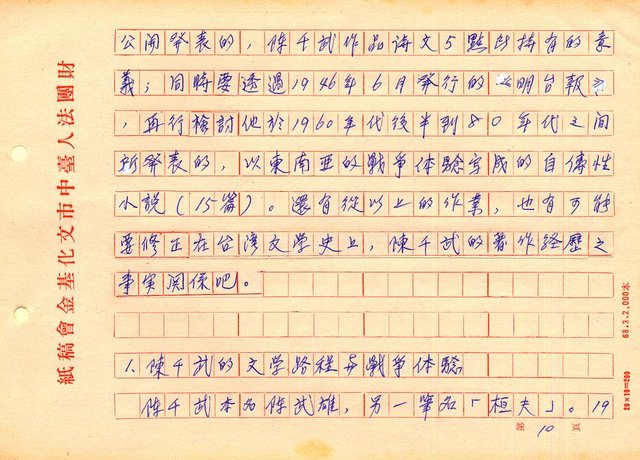 公開發表的，陳千武作品譯文5點所持有的意
義；同時要透過1946年6月發行的《明台報》
，再行檢討他於1960年代後半到80年代之間
所發表的，以東南亞的戰爭体驗写成的自傳性
小説（15篇）。還有從以上的作業，也有可能
要修正在台湾文学史上，陳千武的著作経歷之
事実関係吧。
1、陳千武的文学路程与戰爭体驗
陳千武本名陳武雄，另一筆名「桓夫」。19
財團法人臺中市文化基金會稿紙
68.3.2,000本
20×10＝200
第10頁